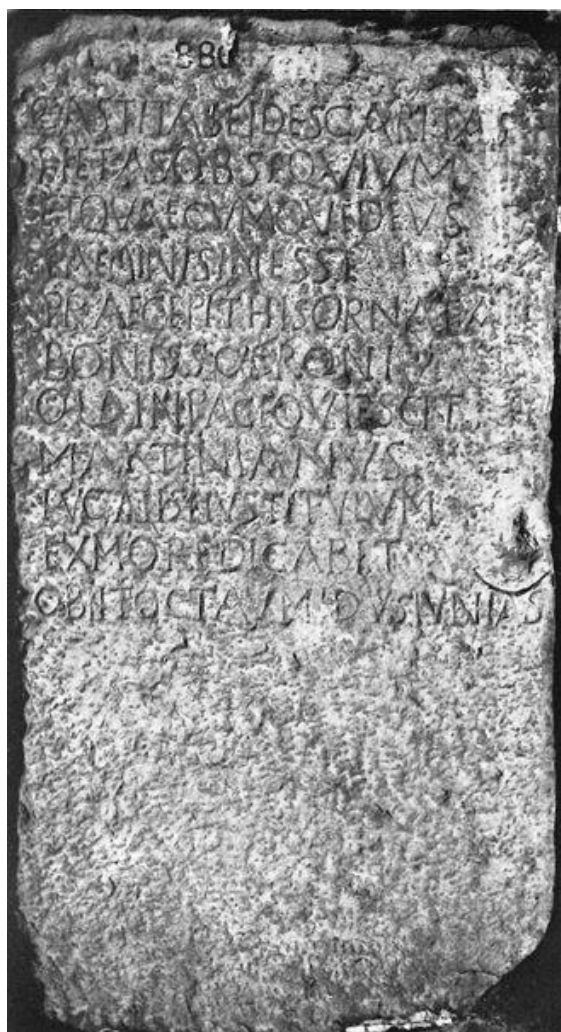 CASTITAS FIDES CARITAS
PIETAS OBSEQVIVM
ET QVAECVMQVE DEVS
FAEMINIS INESSE
PRAECEPIT HIS ORNATA
BONIS
IN PACE QVIESCIT
MARTINIANVS
TITVLVM
EX MORE DICABIT
OBIIT OCTAVM IDVS IVNIAS